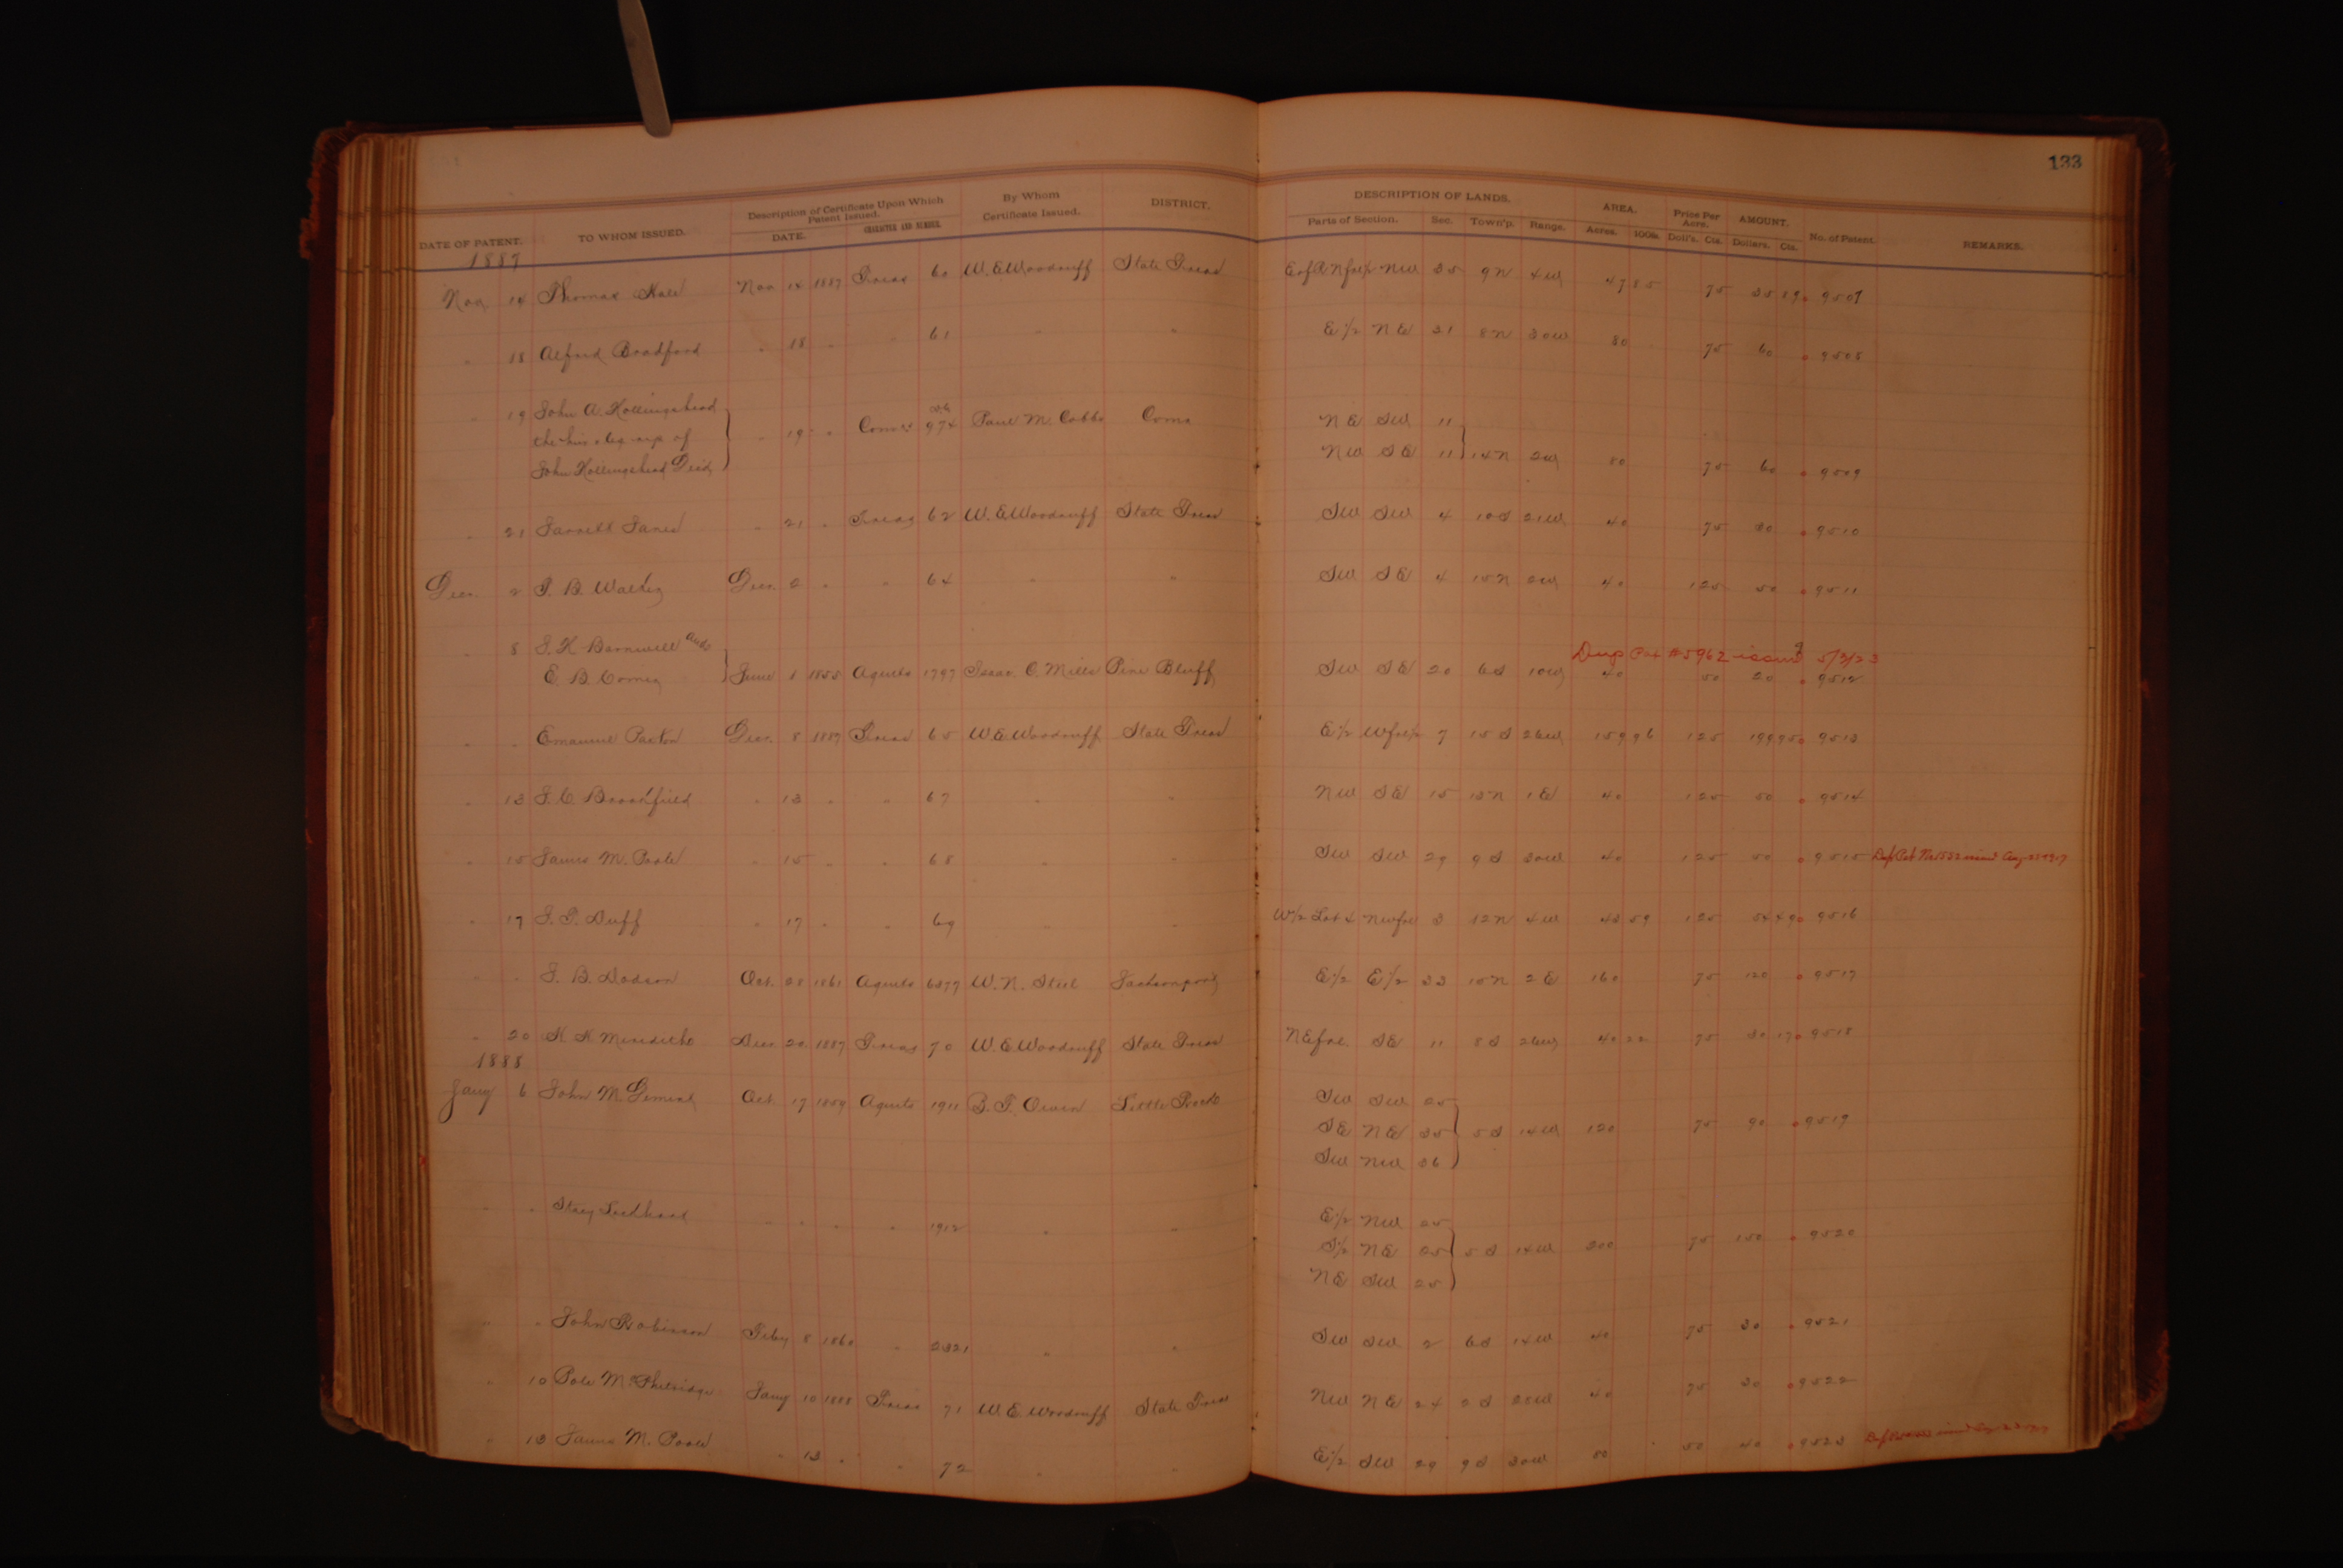 133
DATE OF PATENT. TO WHOM ISSUED. Description of Certificate Upon Which Patent Issued. DATE. CHARACTER AND NUMBER. By Whom Certificate Issued. DISTRICT. DESCRIPTION OF LANDS. Parts of Section. Sec. Town'p. Range. AREA. Acres. 100ths. Price Per Acre. Doll's. Cts. AMOUNT. Dollars. Cts. No. of Patent. REMARKS.
1887
Nov 14 Thomas Hale Nov 14 1887 Treas 60 W. E. Woodruff State Treas NW 35 9N 4W 47 85 75 35 89 9507
" 18 Alford Bradford " 18 " " 61 " " E 1/2 NE 21 8N 30W 80 75 60 9508
" 19 John A. Hollingshead
the heir & leg rep of " 19 " 974 Paul M. Cobbs Coms NE SW 11
John Hollingshead Dec'd NW SE 11 14N 2W 80 75 60 9509
" 21 " 21 " Treas 62 W. E. Woodruff State Treas SW SW 4 10S 21W 40 75 30 9510
Dec. 2 Dec. 2 " " 64 " " SW SE 4 15N 2W 40 125 50 9511
" 8 Barnwell and Dup Pat #5962 issued 5/3/23
E. B. June 1 1855 1797 Isaac C. Mills Pine Bluff SW SE 20 6S 10W 40 50 20 9512
" " Emanuel Paxton Dec. 8 1887 Treas 65 W. E. Woodruff State Treas E 1/2 W frl 1/2 7 15S 26W 159 96 125 199 95 9513
" 13 " 13 " " 67 " " NW SE 15 13N 1E 40 125 50 9514
" 15 James M. Poole " 15 " " 68 " " SW SW 29 9S 30W 40 125 50 9515 Dup Pat issued Aug
" 17 Duff " 17 " " 69 " " W 1/2 Lot 4 NW frl 3 12N 4W 43 59 125 54 49 9516
" " B. Dodson Oct. 28 1861 6377 W. N. Steel Jacksonport E 1/2 E 1/2 33 10N 2E 160 75 120 9517
" 20 Dec 20 1887 Treas 70 W. E. Woodruff State Treas NE frl. SE 11 8S 26W 40 22 75 30 17 9518
1888
Jany 6 John M. Oct. 17 1859 1911 B. T. Owen Little Rock SW SW 25
SE NE 35 5S 14W 120 75 90 9519
SW NW 36
" " " " " " 1912 " " E 1/2 NW 25
S 1/2 NE 25 5S 14W 200 75 150 9520
NE SW 25
" " John Robinson Feby 8 1860 " 2321 " " SW SW 2 6S 14W 40 75 30 9521
" 10 Jany 10 1888 Treas 71 W. E. Woodruff State Treas NW NE 24 2S 28W 40 75 30 9522
" 13 James M. Poole " 13 " " 72 " " E 1/2 SW 29 9S 30W 80 50 40 9523